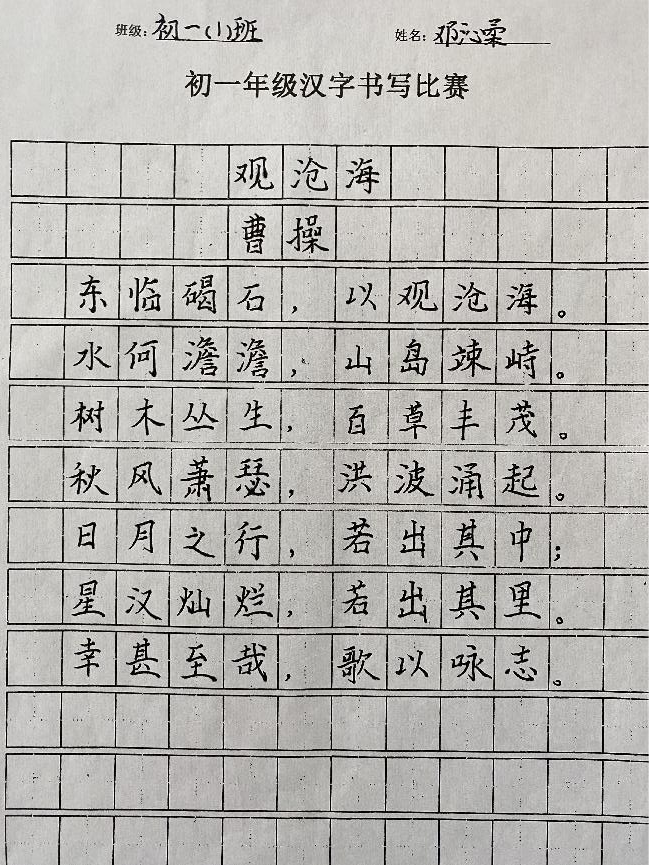 班级：初一(1)班 姓名：邓沁柔
初一年级汉字书写比赛
观沧海
曹操
东临碣石，以观沧海。
水何澹澹，山岛竦峙。
树木丛生，百草丰茂。
秋风萧瑟，洪波涌起。
日月之行，若出其中；
星汉灿烂，若出其里。
幸甚至哉，歌以咏志。